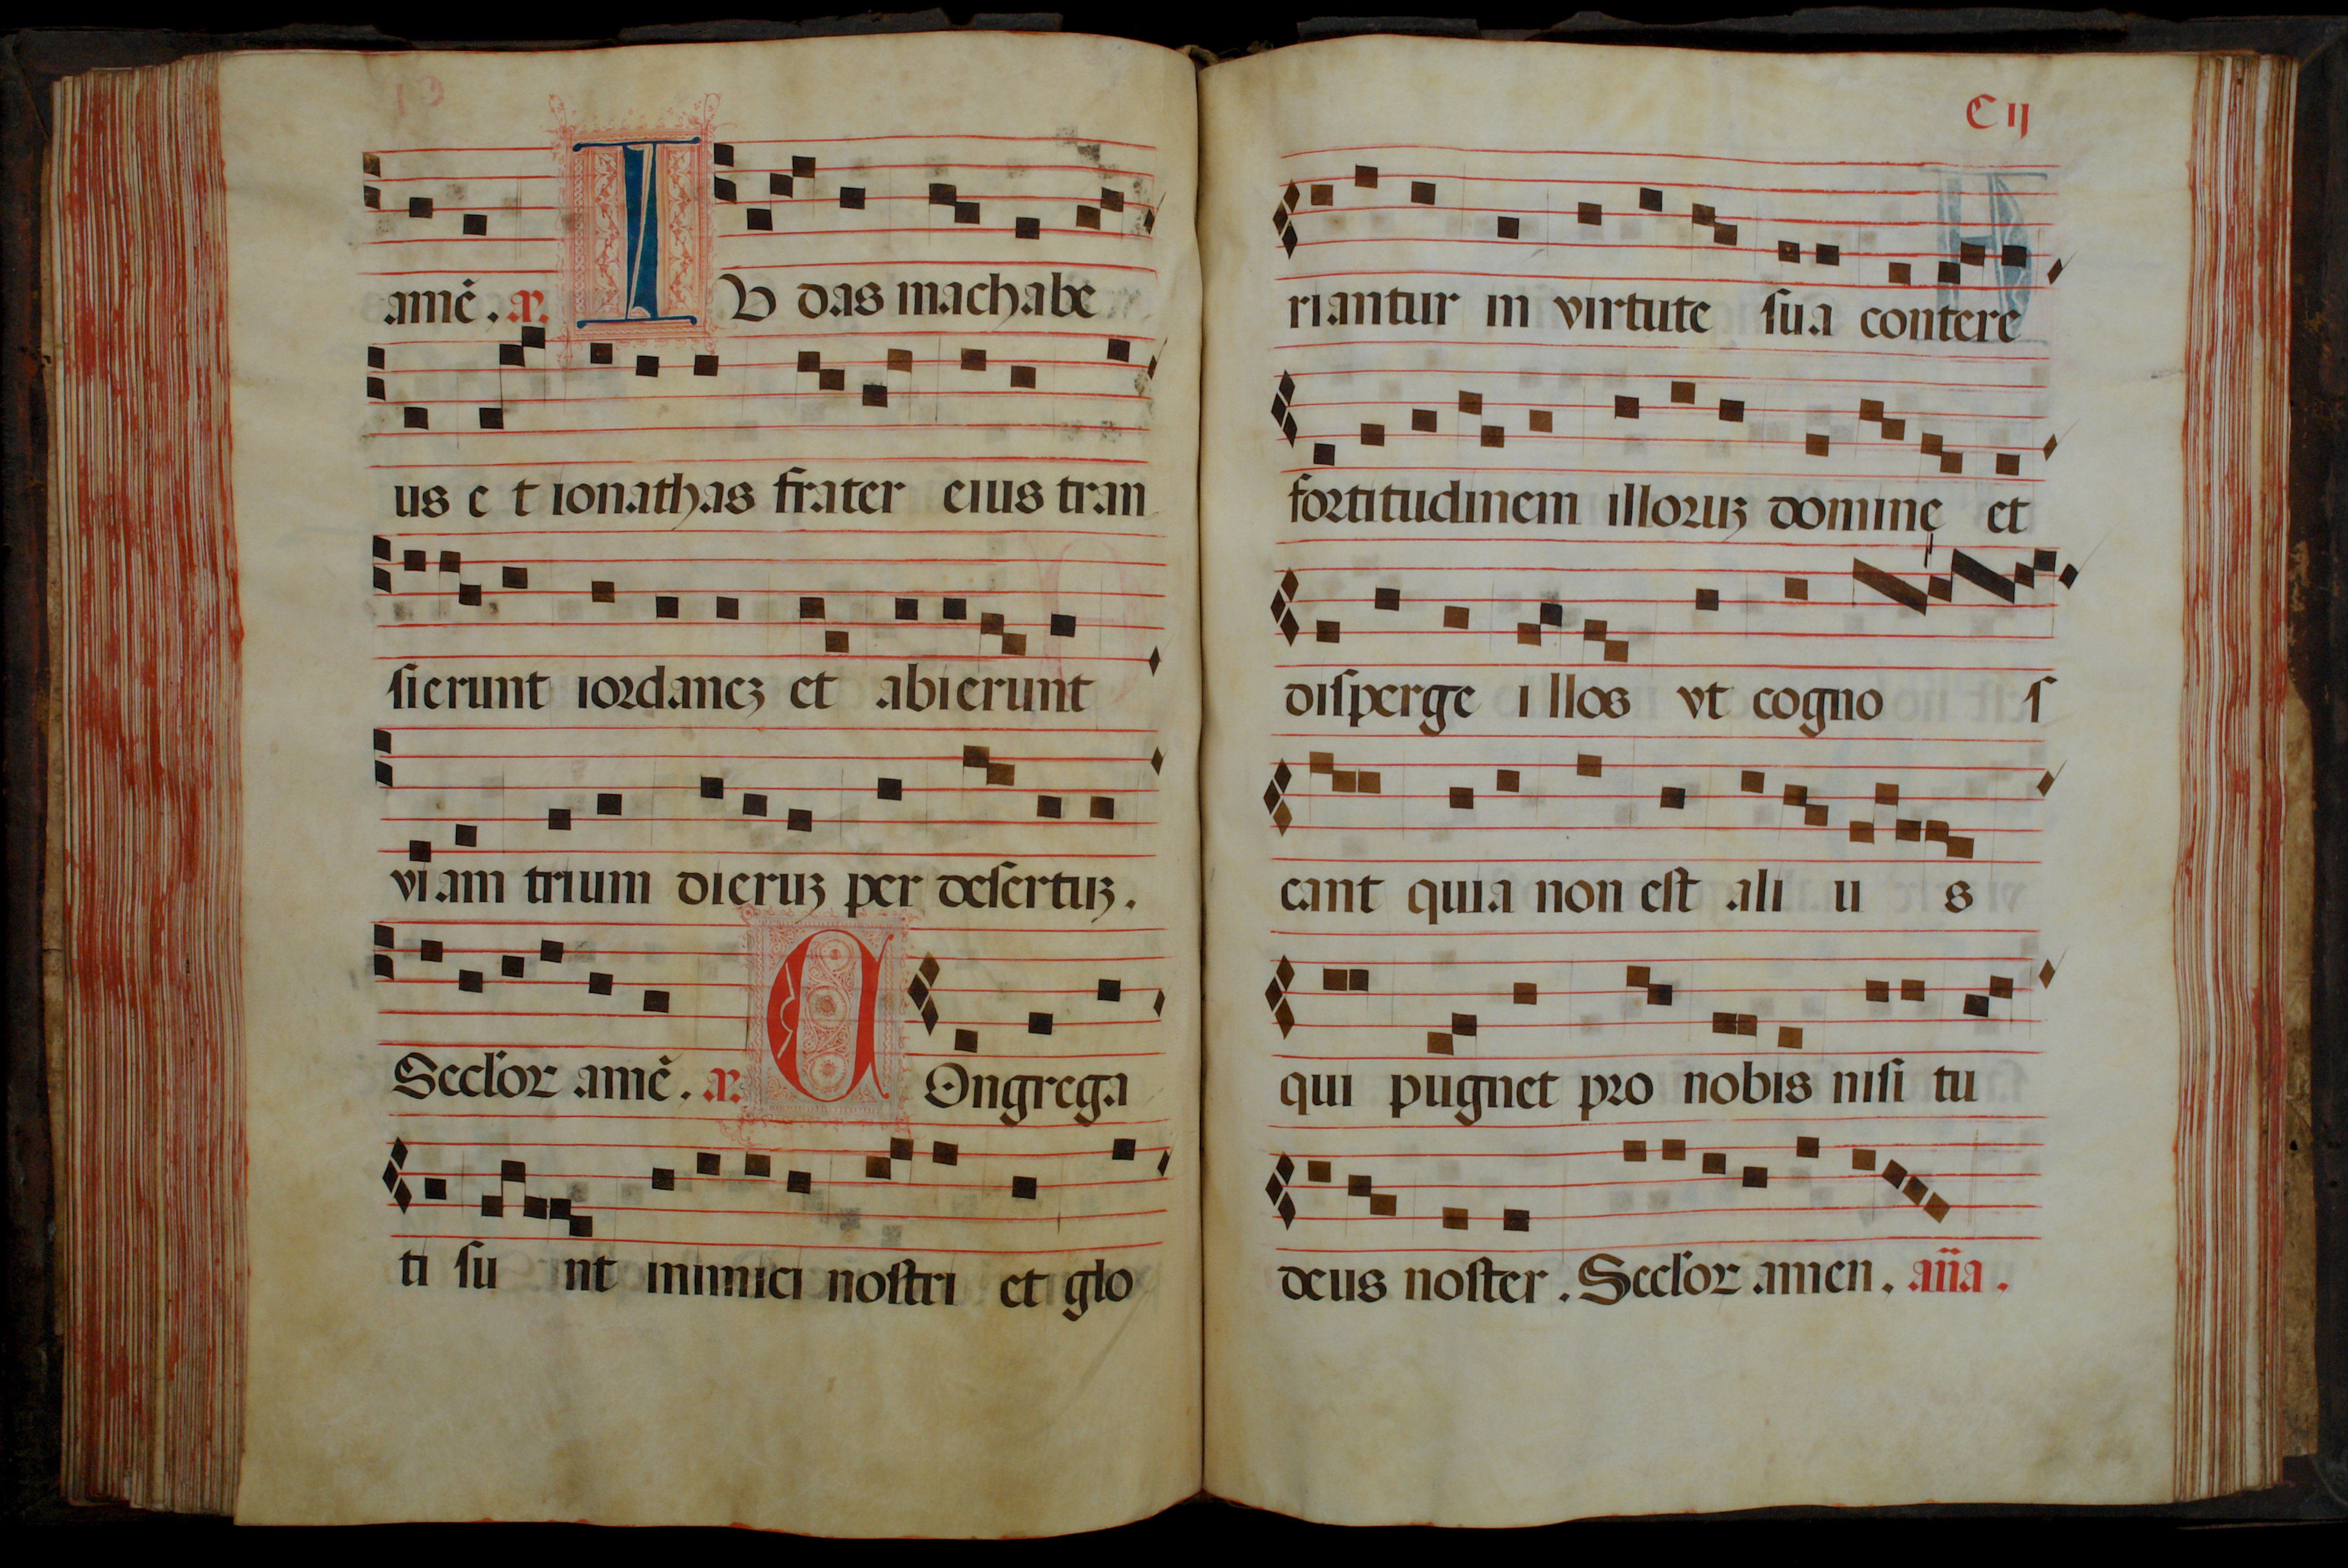 amẽ. a. I V das machabe
us e t ionathas frater eius tran
sierunt iordaneʒ et abierunt
viam trium dieruʒ per desertuʒ.
Seclor amẽ. a. C Ongrega
ti su nt inimici nostri et glo
C ij
riantur in virtute sua contere
fortitudinem illoruʒ domine et
disperge i llos vt cogno s
cant quia non est ali u s
qui pugnet pro nobis nisi tu
deus noster. Seclor amen. aña.